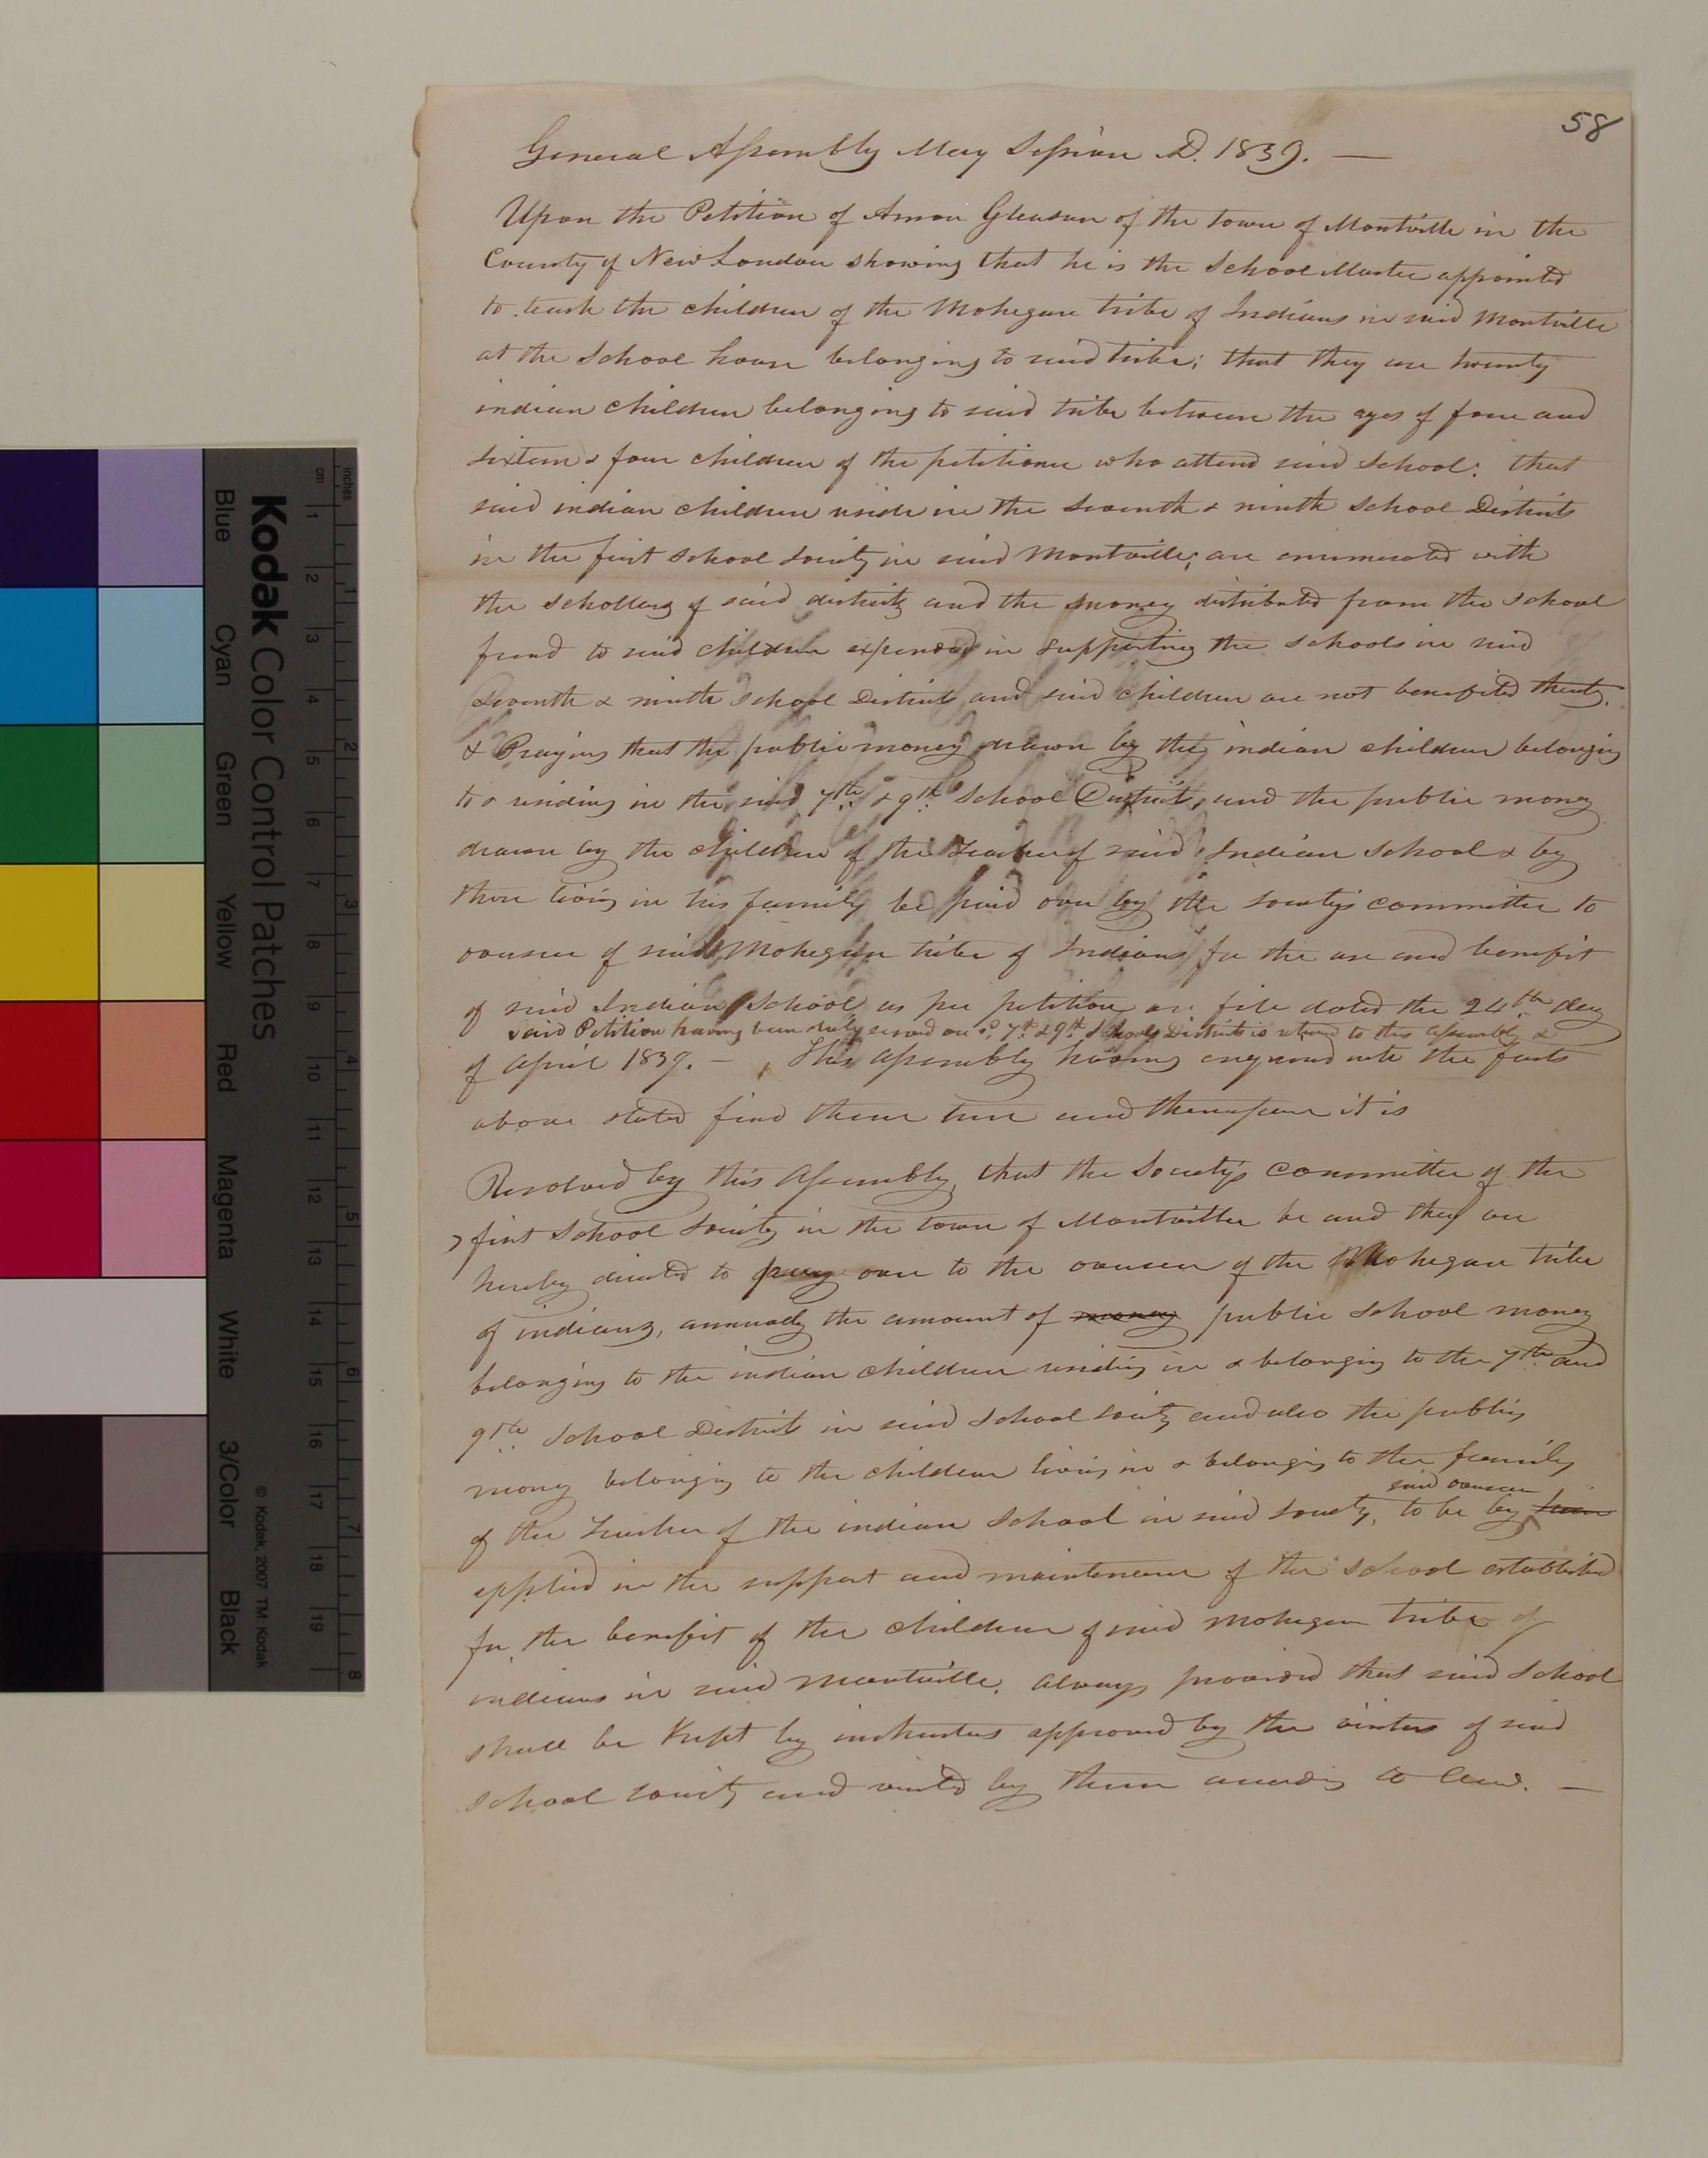 58
General Assembly May Session D. 1839. —
Upon the Petition of Amon Gleason of the town of Montville in the
County of New London showing that he is the School Master appointed
to teach the children of the Mohegan tribe of Indians in said Montville
at the School house belonging to said tribe; that they are twenty
indian children belonging to said tribe between the ages of four and
sixteen & four children of the petitioner who attend said School: that
said indian children reside in the seventh & ninth School Districts
in the first School Society in said Montville; are enumerated with
the schollars of said districts and the money distributed from the School
fund to said children expended in supporting the schools in said
Seventh & ninth School Districts and said children are not benefited thereby.
& Praying that the public money drawn by the indian children belonging
to & residing in the said 7th & 9th School Districts, and the public money
drawn by the children of the Teacher of said Indian School & by
those living in his family be paid over by the societys committee to
overseer of said Mohegan tribe of Indians for the use and benefit
of said Indian School as per petition on file dated the 24th day
said Petition having been duly served on sd. 7th & 9th Schools Districts is returned to this assembly &
of April 1839. — This assembly having enquired into the facts
above stated find them true and thereupon it is
Resolved by this Assembly, that the Society's committee of the
first School Society in the town of Montville be and they are
hereby directed to pay over to the overseer of the Mohegan tribe
of indians, annually the amount of money public School money
belonging to the indian children residing in & belonging to the 7th and
9th School Districts in said School society and also the public
money belonging to the children living in & belonging to the family
said overseer
of the Teacher of the indian School in said society, to be by him
applied in the support and maintenance of the School established
for the benefit of the children of said Mohegan tribe of
indians in said Montville. always provided that said School
shall be kept by instructors approved by the visitors of said
School society and visited by them according to law. —
inches
cm
1
2
3
4
5
6
7
8
9
10
11
12
13
14
15
16
17
18
19
1
2
3
4
5
6
7
8
Kodak Color Control Patches
© Kodak, 2007 TM: Kodak
Blue
Cyan
Green
Yellow
Red
Magenta
White
3/Color
Black